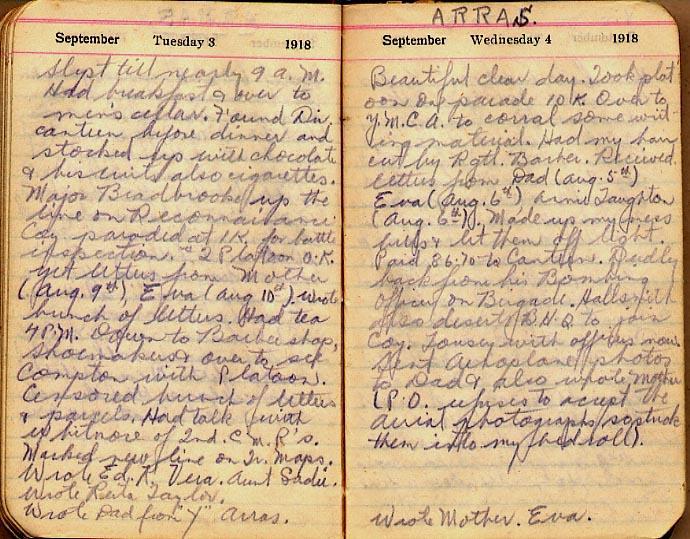 September Tuesday 3 1918
Slept till nearly 9 a.m.
Had breakfast & over to
men's cellar. Found Div.
canteen before dinner and
stocked up with chocolate
& biscuits also cigarettes.
Major Bradbrooke up the
line on Reconnaisance
Coy paraded at 1 K. for battle
inspection. # 2 Platoon O.K.
Get letters from Mother
(Aug. 9th) Eva (Aug 10th). Wrote
bunch of letters. Had tea
4 P.M. Down to Barber shop,
Shoemakers & over to see
Compton with Platoon.
Censored bunch of letters
& parcels. Had talk with
Whitmore of 2nd. C.M.R's.
Marked new line on Tr. Maps.
Wrote Ed. K. Vera. Aunt Sadie.
Wrote Reita Taylor.
Wrote Dad from "Y" Arras.
ARRAS.
September Wednesday 4 1918
Beautiful clear day. Took plat
oon on parade 10 K. Over to
Y.M.C.A. to corral some writ
ing material. Had my hair
cut by Batt. Barber. Received
letters from Dad (Aug. 5th)
Eva (Aug. 6th) Arnie Taughton
(Aug. 6th). Made up my mess
bills & let them off light.
Paid 86.70 to Canteen. Dudley
back from his Bombing
Officer on Brigade. Hallsmith
also deserts B.H.Q. to join
Coy. Lousy with officers now.
Sent Aeroplane photos
to Dad & also wrote Mother
(P.O. refuses to accept the
aerial photographs so stuck
them into my bed roll).
Wrote Mother. Eva.